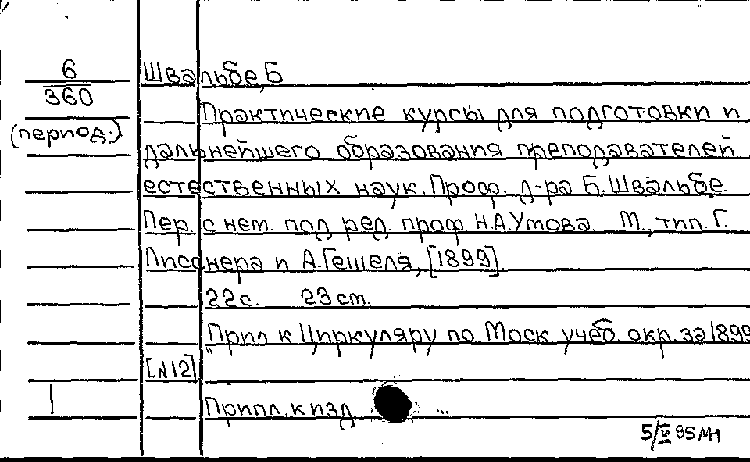 6
360
(период.)
Швальбе, Б
Практические курсы для подготовки и
дальнейшего образования преподавателей
естественных наук. Проф. д-ра Б. Швальбе
Пер. с нем. под ред. проф Н.А.Умова. М., тип. Г.
Лисснера и А.Гешеля, [1899]
22с. 23 cm.
"Прил к Циркуляру по Моск учеб. окр. за 1899
[№12]
Припл. к изд ...
5/IV 95